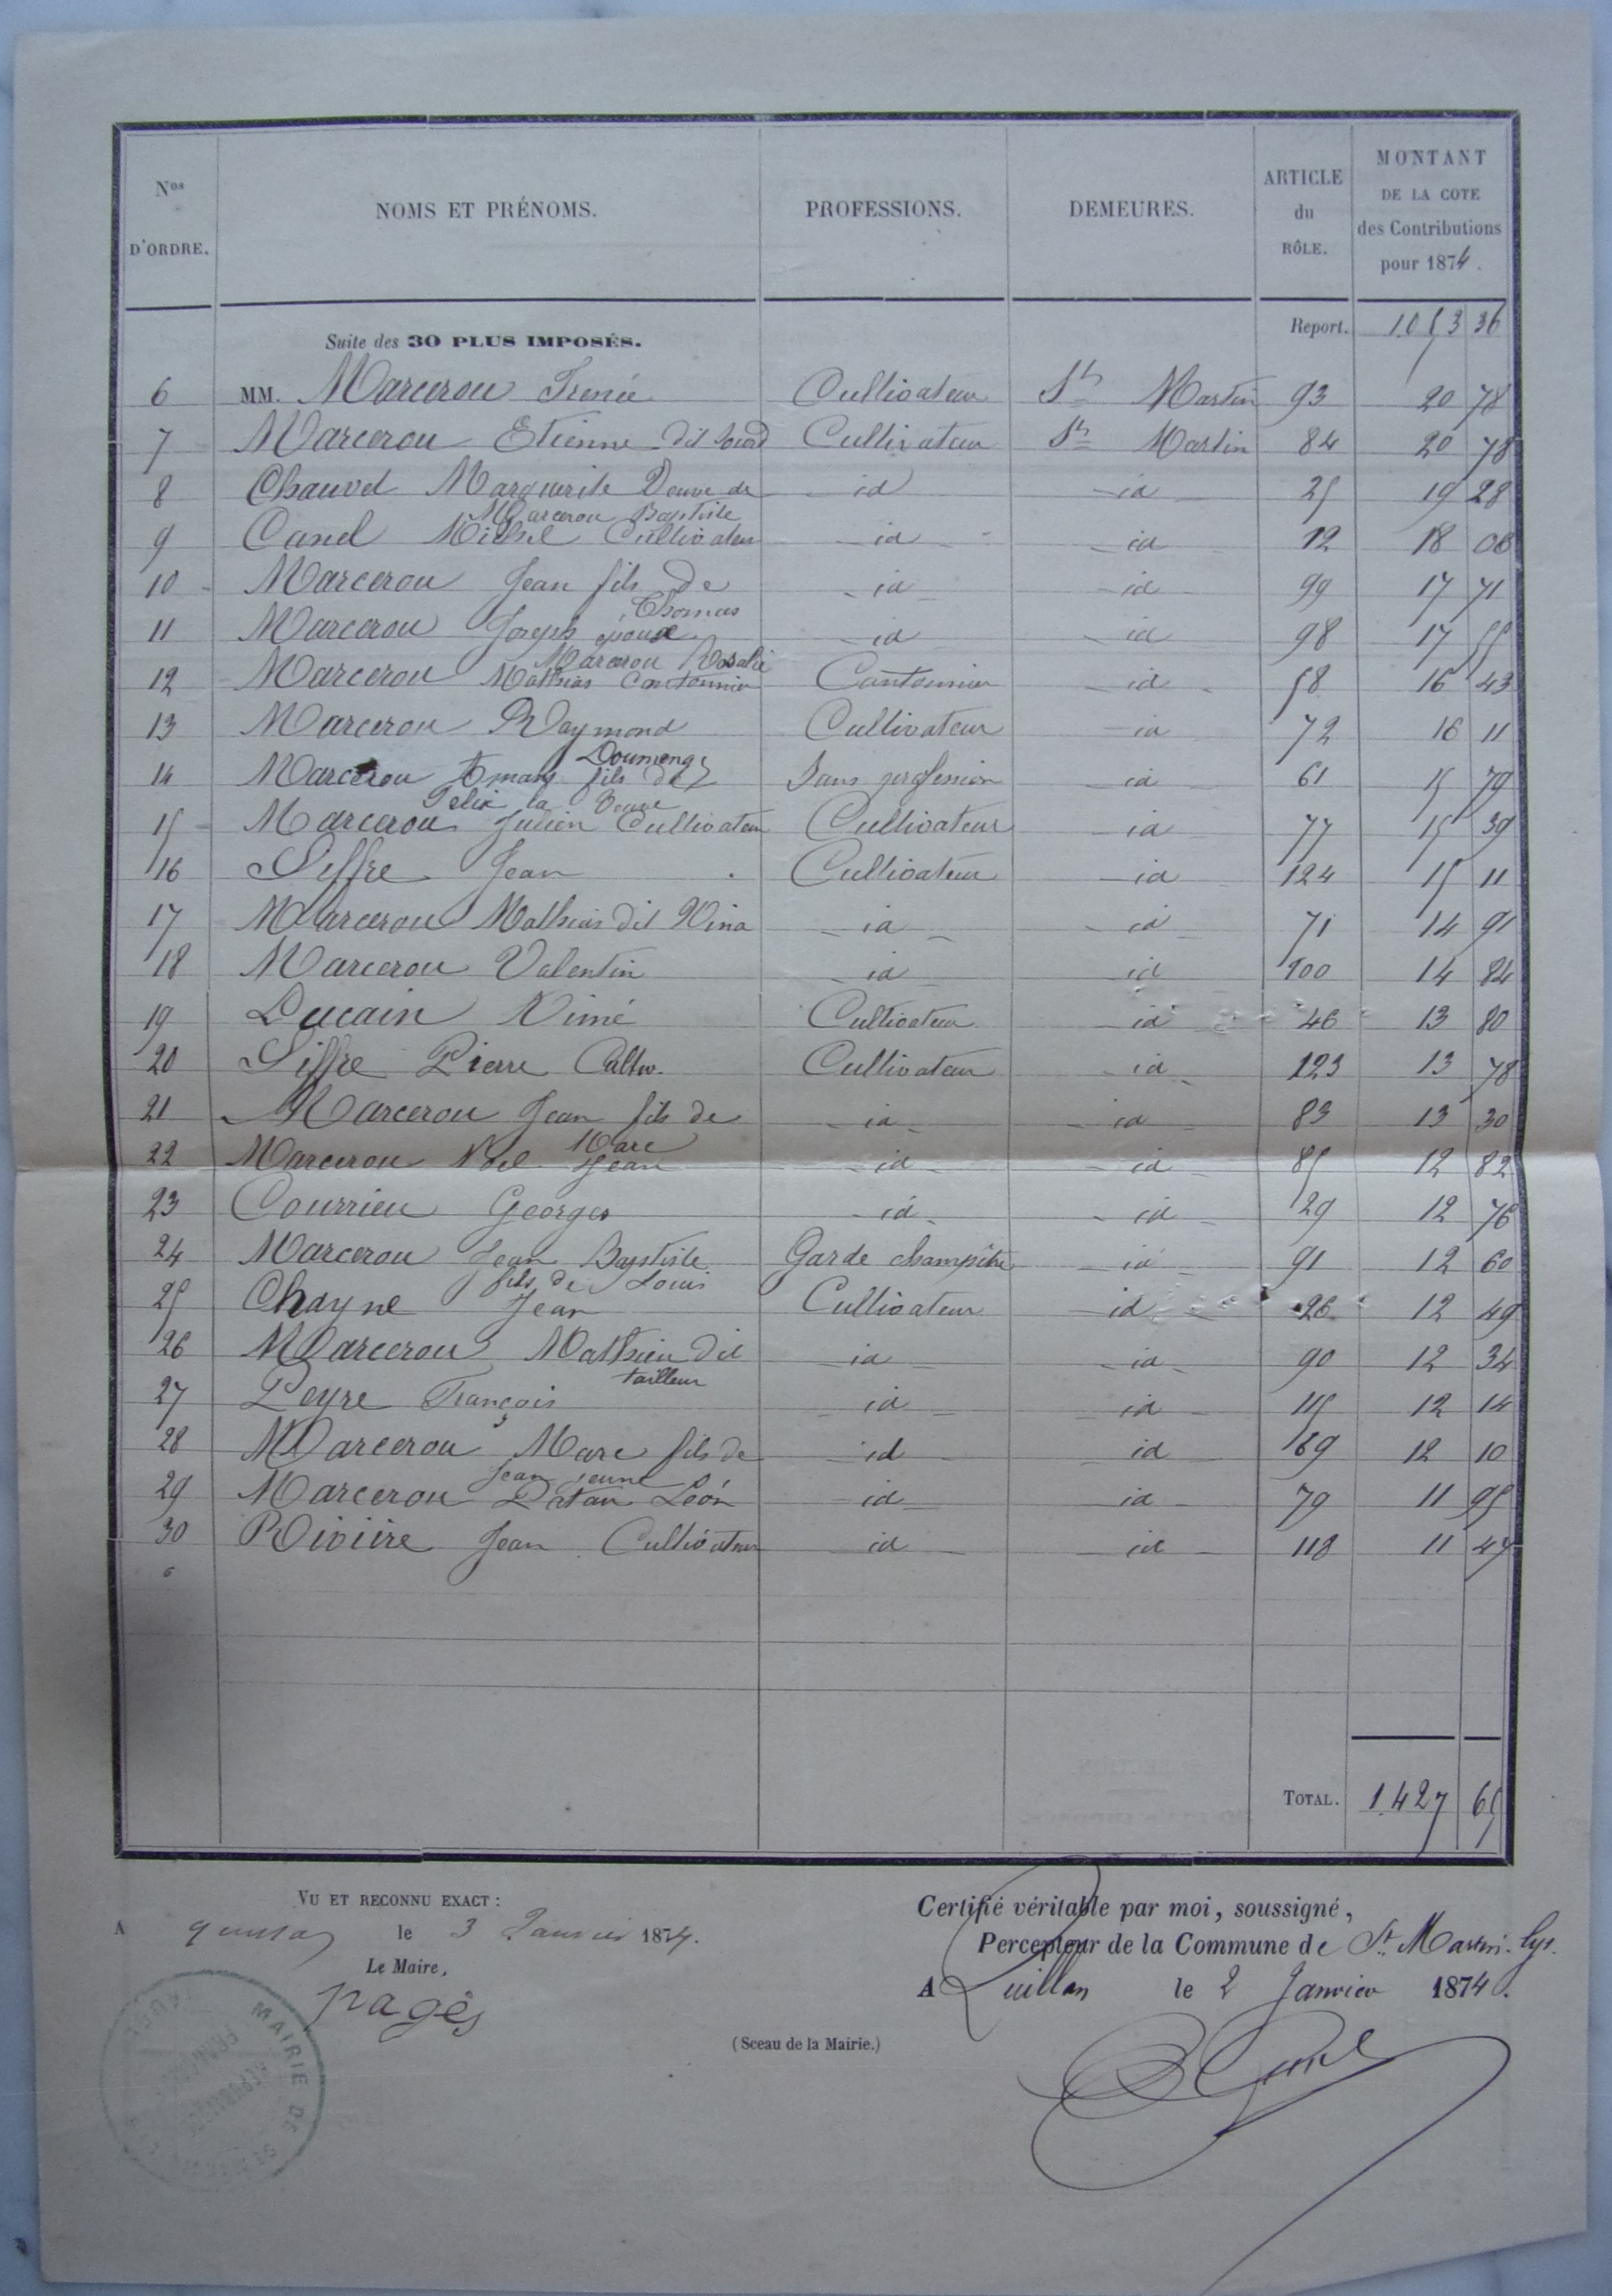 Nos D'ORDRE. NOMS ET PRÉNOMS. PROFESSIONS. DEMEURES. ARTICLE du RÔLE. MONTANT DE LA COTE des Contributions pour 1874.
Suite des 30 PLUS IMPOSÉS. Report. 1053 36
6 MM. Marcerou Irenée Cultivateur St Martin 93 20 78
7 Marcerou Etienne dit sourd Cultivateur St Martin 84 20 78
8 Chauvet Marguerite Veuve de id id 25 19 28
Marcerou Baptiste
9 Canel Michel Cultivateur id id 12 18 08
10 Marcerou Jean fils de id id 99 17 71
Thomas
11 Marcerou Joseph époux id id 98 17 55
Marcerou Rosalie
12 Marcerou Mathias Cantonnier Cantonnier id 58 16 43
13 Marcerou Raymond Cultivateur id 72 16 11
Doumeng
14 Marcerou fils de Sans profession id 61 15 79
Felix la Veuve
15 Marcerou Julien Cultivateur Cultivateur id 77 15 39
16 Siffre Jean Cultivateur id 124 15 11
17 Marcerou Mathias dit id id 71 14 91
18 Marcerou Valentin id id 100 14 84
19 Lucain Cultivateur id 46 13 80
20 Siffre Pierre Cultiv. Cultivateur id 123 13 78
21 Marcerou Jean fils de id id 83 13 30
Marc
22 Marcerou Noel Jean id id 85 12 82
23 Courrieu Georges id id 29 12 76
24 Marcerou Jean Baptiste Garde champêtre id 91 12 60
fils de Louis
25 Chayne Jean Cultivateur id 26 12 49
26 Marcerou Mathieu dit id id 90 12 34
tailleur
27 Peyre François id id 115 12 14
28 Marcerou Marc fils de id id 89 12 10
Jean jeune
29 Marcerou Léon id id 79 11 95
30 Rivière Jean Cultivateur id id 118 11 47
TOTAL. 1427 65
VU ET RECONNU EXACT :
A le 3 Janvier 1874.
Le Maire,
pagès
Certifié véritable par moi, soussigné,
Percepteur de la Commune de St Martin-Lys.
A Quillan le 2 Janvier 1874.
(Sceau de la Mairie.)
MAIRIE DE